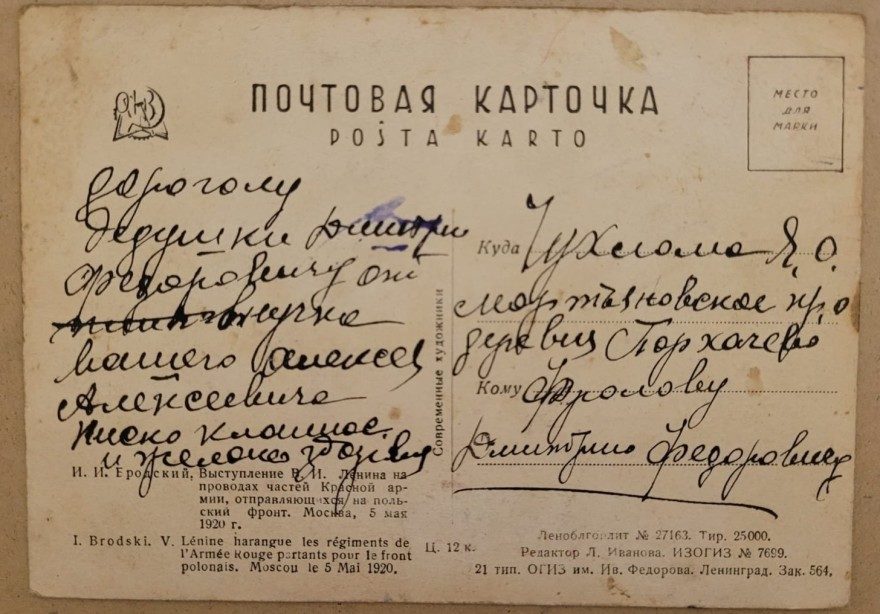 ПОЧТОВАЯ КАРТОЧКА
POŜTA KARTO
МЕСТО
ДЛЯ
МАРКИ
дорогому
дедушки Дмитри
Федоровичу от
внучка
вашего алексея
Алексеевича
ниско клаюсь
и желаю здазівия
Современные художники
Куда Чухлома Я. О.
мартьяновское про
деревня Порхачево
Кому Фролову
Дмитрию Федоровичу
И. И. Бродский, Выступление В. И. Ленина на
проводах частей Красной ар-
мии, отправляющихся на поль-
ский фронт. Москва, 5 мая
1920 г.
I. Brodski. V. Lénine harangue les régiments de
l'Armée Rouge partants pour le front
polonais. Moscou le 5 Mai 1920.
Ц. 12 к.
Леноблгорлит № 27163. Тир. 25000.
Редактор Л. Иванова. ИЗОГИЗ № 7699.
21 тип. ОГИЗ им. Ив. Федорова. Ленинград. Зак. 564,